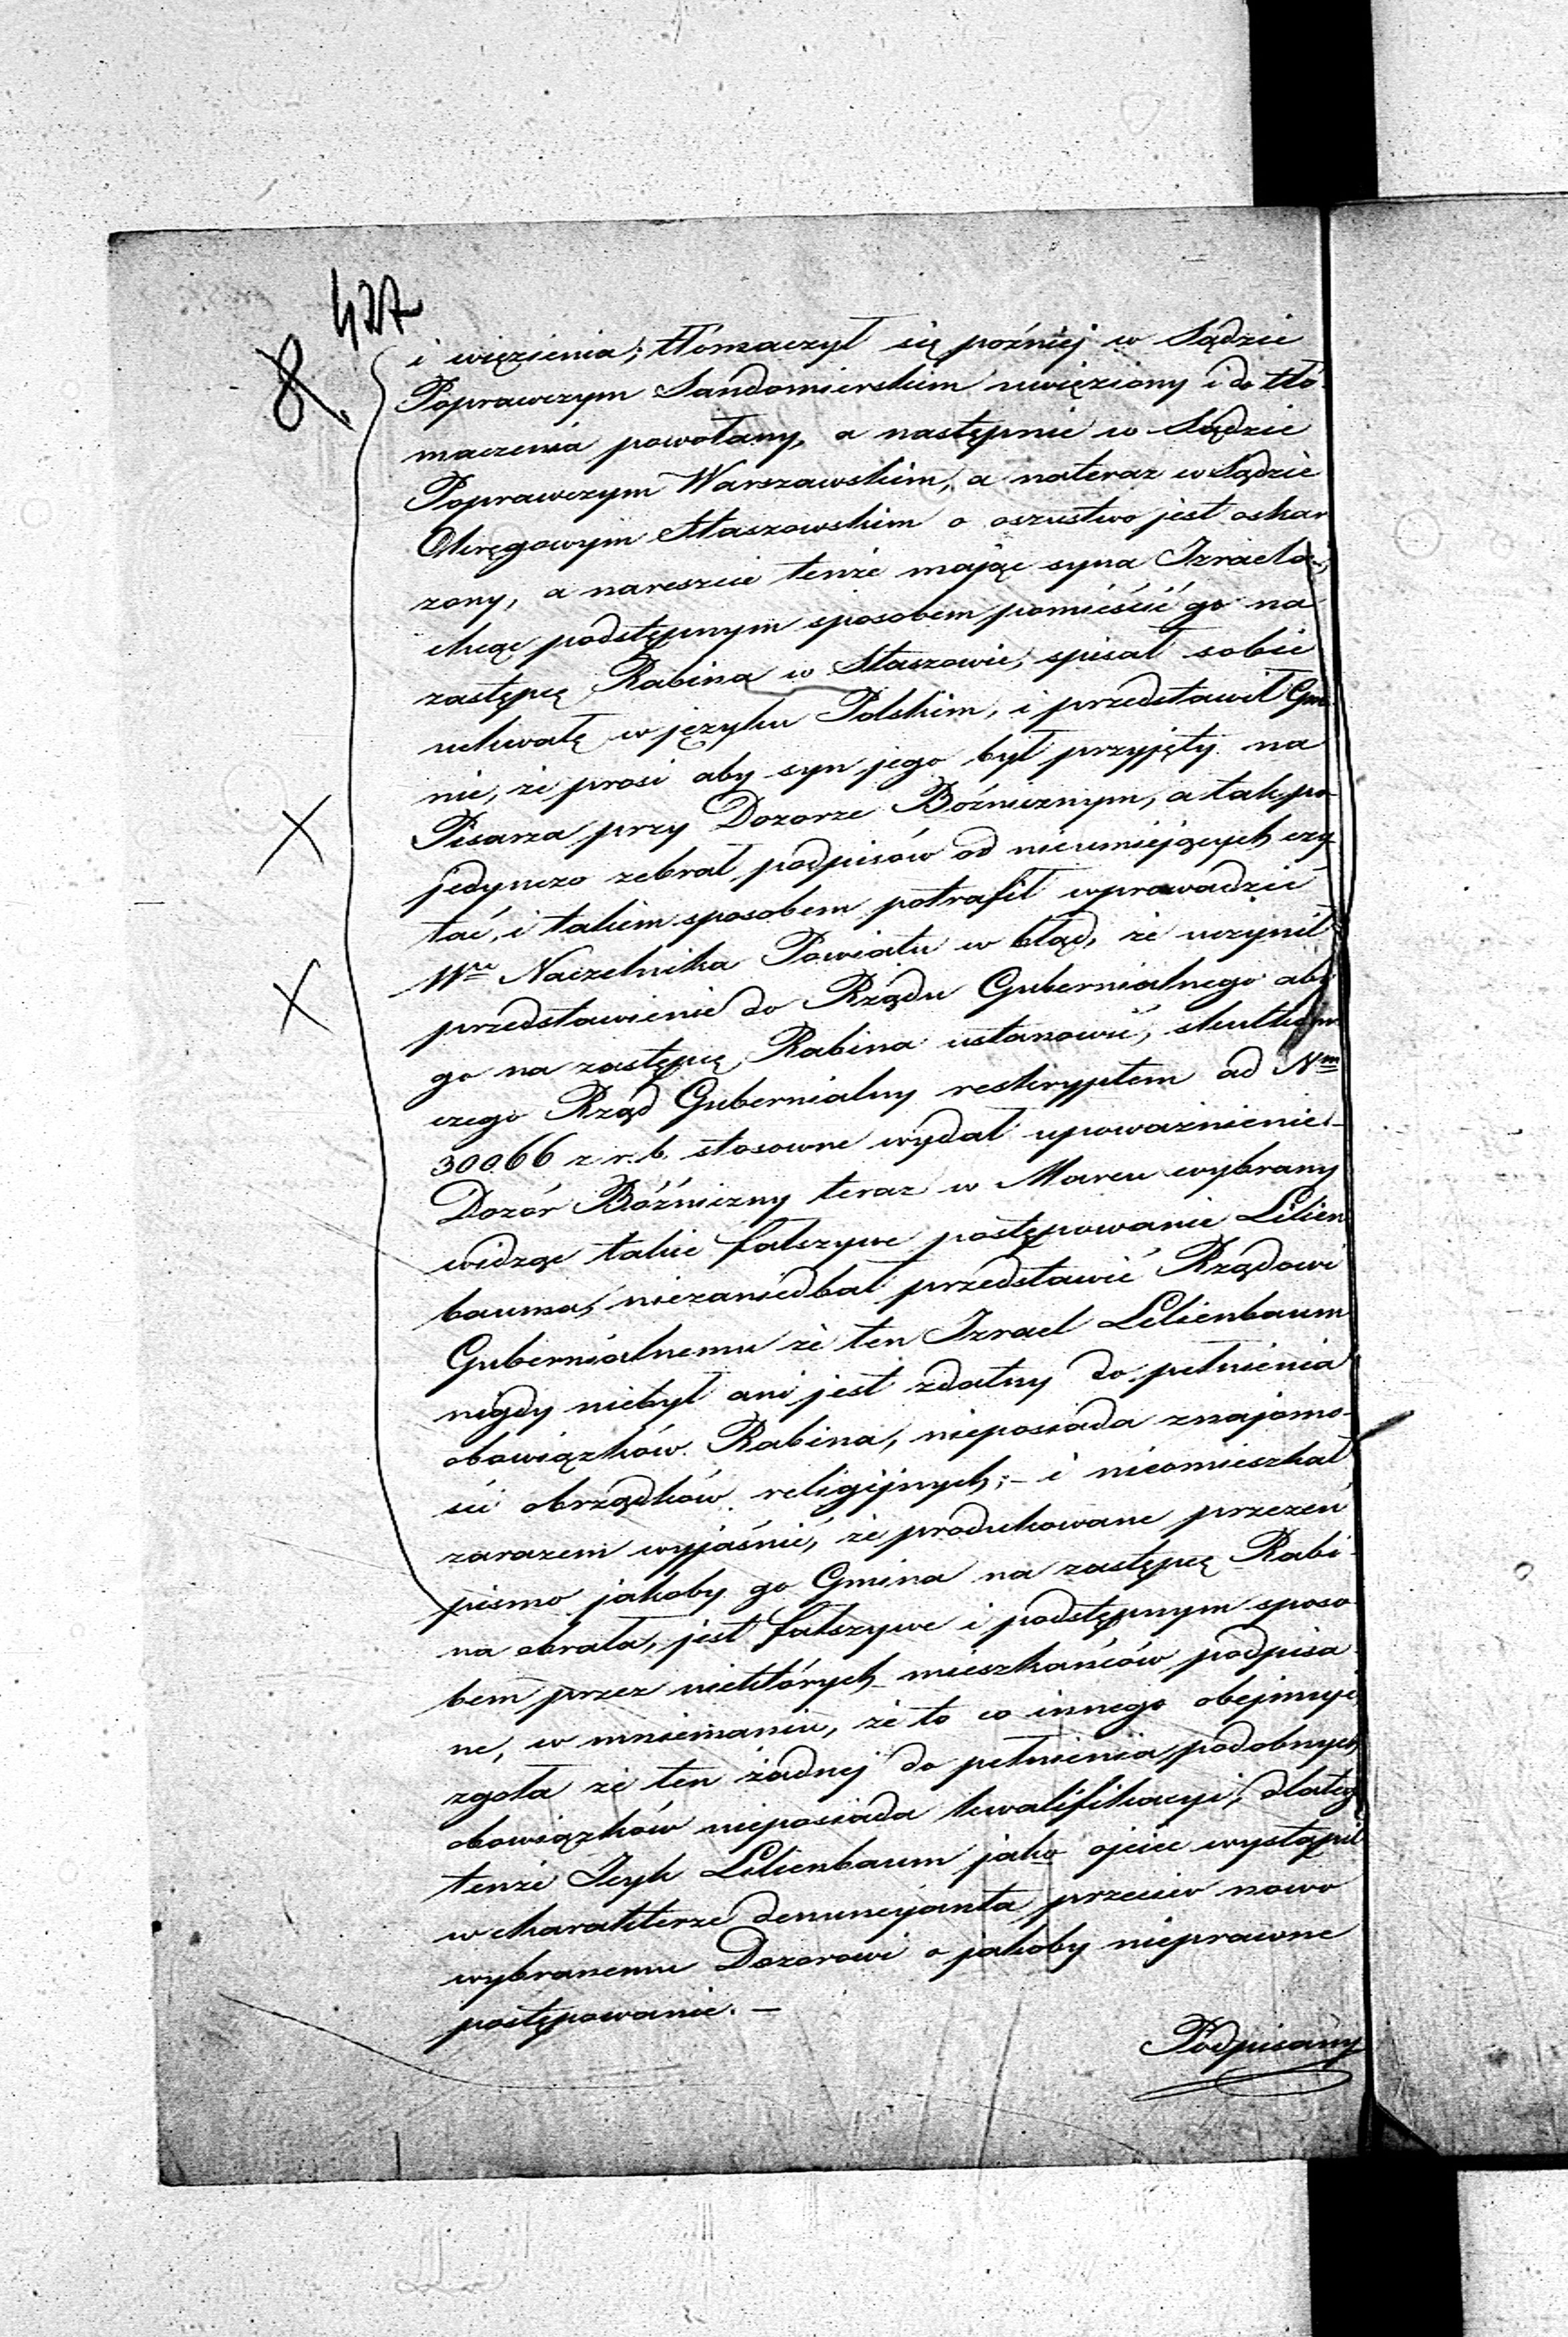 427
8.
i więzienia; tłómaczył się późniéj w Sądzie
Poprawczym Sandomierskim uwięziony i do tłó-
maczenia powołany, a następnie w Sądzie
Poprawczym Warszawskim, a nateraz w Sądzie
Okręgowym Staszowskim o oszustwo jest oskar
żony, a nareszcie tenże mając syna Izraela,
chcąc podstępnym sposobem pomieścić go na
zastępcę Rabina w Staszowie, spisał sobie
uchwałę w języku Polskim, i przedstawił Gmi
nie, że prosi aby syn jego był przyjęty na
Pisarza przy Dozorze Bóżnicznym, a tak po
jedynczo zebrał podpisów od nieumiejących czy
tać, i takiem sposobem potrafił wprowadzić
Wgo Naczelnika Powiatu w błąd, że uczynił
przedstawienie do Rządu Gubernialnego aby
go na zastępcę Rabina ustanowić, skutkiem
czego Rząd Gubernialny reskryptem ad Nm
30066 z r. b. stosowne wydał upoważnienie.-
Dozór Bóźniczny teraz w Marcu wybrany
widząc takie fałszywe postępowanie Lilien
bauma, niezaniedbał przedstawić Rządowi
Gubernialnemu że ten Izrael Lilienbaum
nigdy niebył ani jest zdatny do pełnienia
obowiązków Rabina, nieposiada znajomo-
ści obrządków religijnych;- i nieomieszkał
zarazem wyjaśnić, że produkowane przezeń
pismo jakoby go Gmina na zastępcę Rabi-
na obrała, jest fałszywe i podstępnym sposo
bem przez niektórych mieszkańców podpisa
ne, w mniemaniu, że to co innego obejmuje
zgoła że ten żadnej do pełnienia podobnych
obowiązków nieposiada kwalifikacyi, dlatego
tenże Icyk Lilienbaum jako ojciec wystąpił
w charakterze denuncyanta przeciw nowo
wybranemu Dozorowi o jakoby nieprawne
postępowanie. -
Podpisany